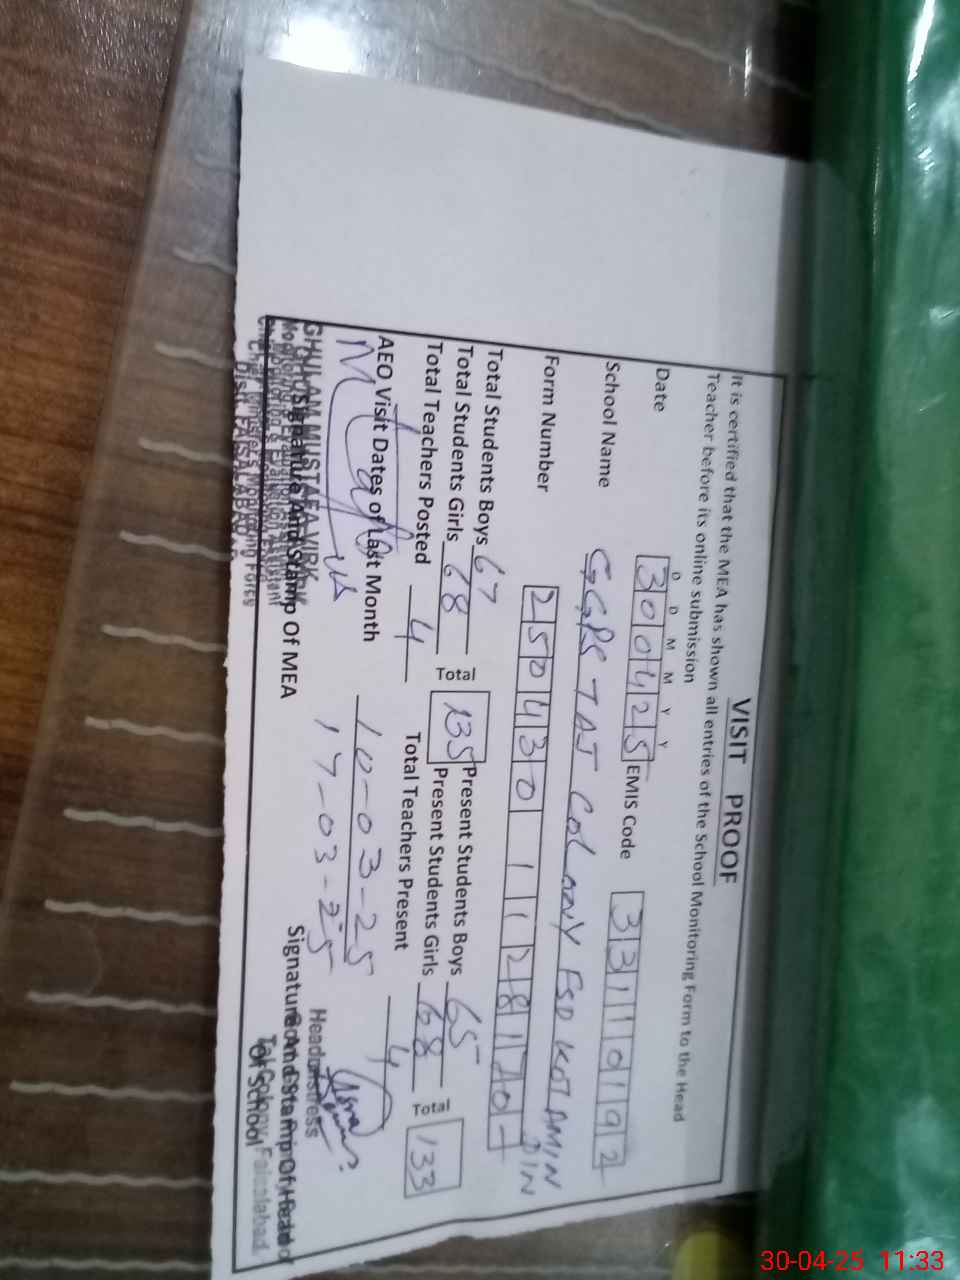 VISIT PROOF
It is certified that the MEA has shown all entries of the School Monitoring Form to the Head
Teacher before its online submission
D D M M Y Y
Date 300425 EMIS Code 33110192
School Name GGPS TAJ COLONY FSD KOT AMIN
DIN
Form Number 250430 11281
Total Students Boys 67 Present Students Boys 65
Total Students Girls 68 Total 135 Present Students Girls 68 Total 133
Total Teachers Posted 4 Total Teachers Present 4
AEO Visit Dates of Last Month 10-03-25
17-03-25
GHULAM MUSTAFA VIRK
Signature And Stamp Of MEA
Signature And Stamp Of Head
Of School
Distt. FAISALABAD
30-04-25 11:33